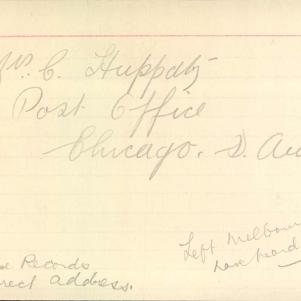 C. Huppatz
Post Office
Chicago. S. Au
Left Melbour
have heard
Records
rect address.